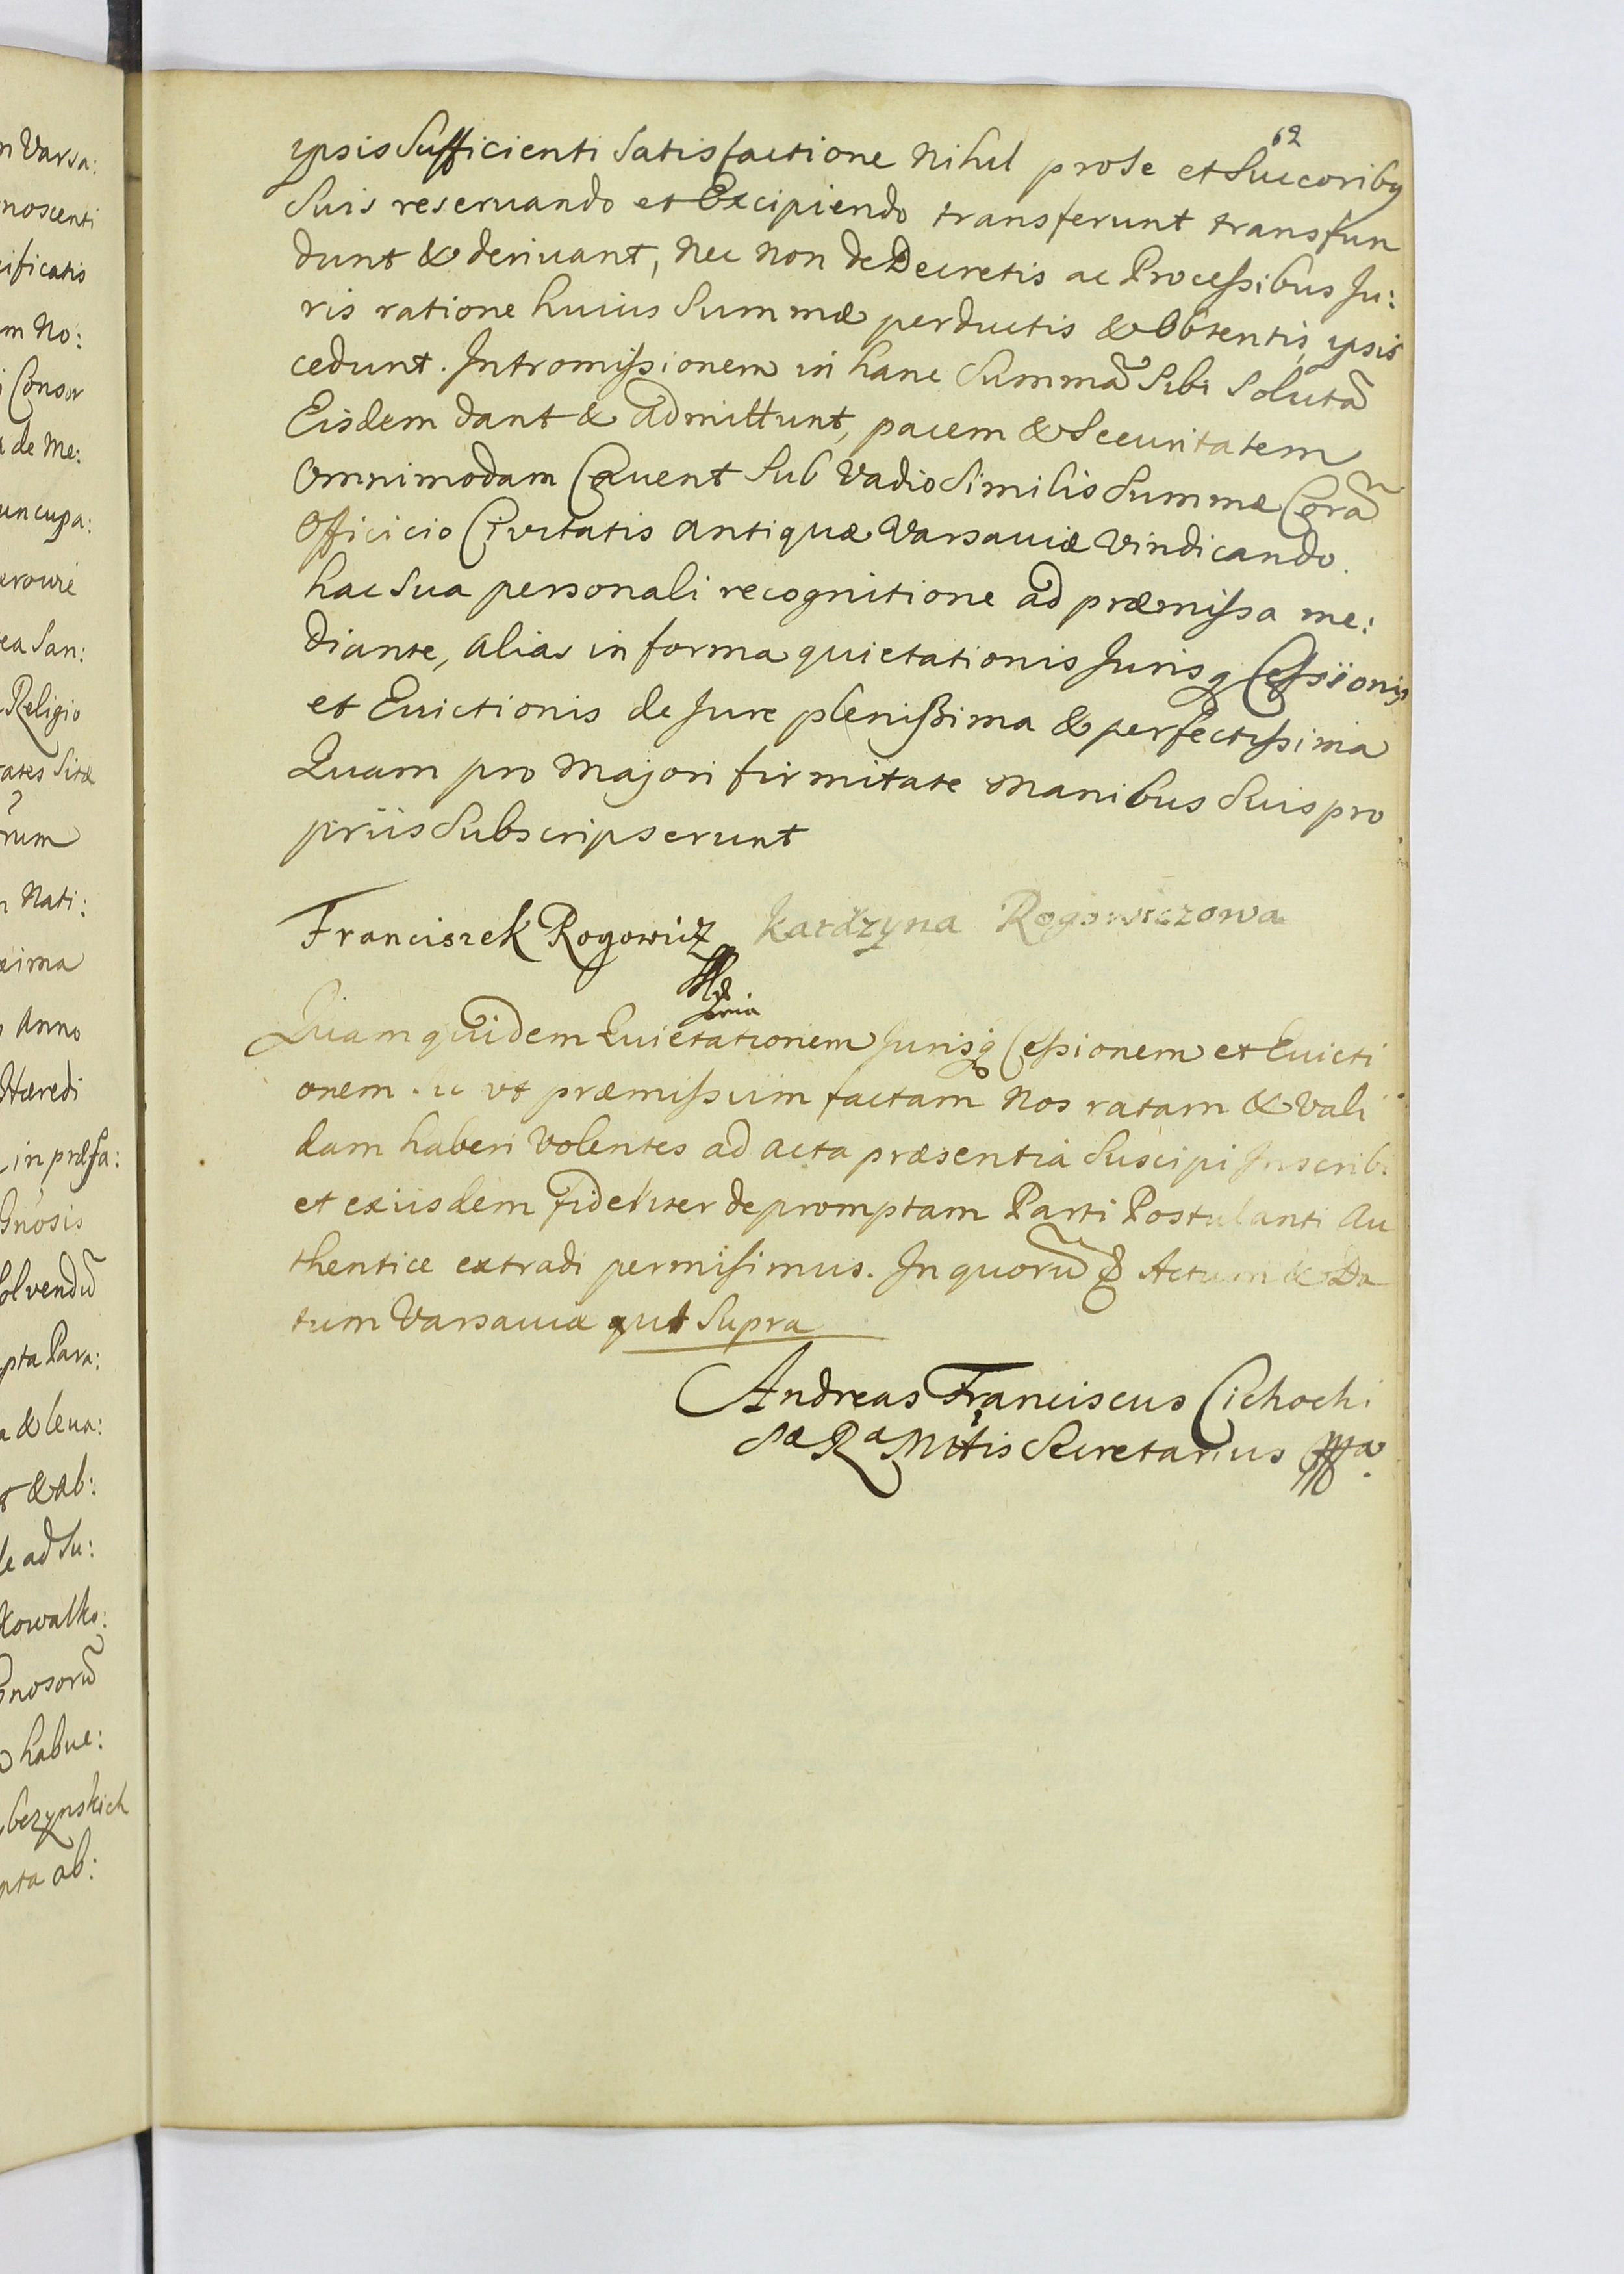 62
ypsis Sufficienti Satisfactione Nihil pro Se et Succoribg
Suis reseruando et Excipiendo transferunt transfun
dunt & deriuant, Nec Non de Decretis ac Processibus Ju:
ris ratione huius Summæ perductis & Obtentis, ypsis
cedunt. Intromissionem in hanc Summã Sibi Solutã
Eisdem dant & admittunt, pacem & Securitatem
Omnimodam Cauent Sub Vadio Similis Summæ Corã
Officicio Civitatis Antiquæ Varsauiæ Vindicando.
hac Sua personali recognitione ad præmissa me:
diante, alias in forma quietationis Jurisq Cessionis
et Euictionis de Jure plenissima & perfectissima
Quam pro Majori firmitate Manibus Suis pro
priis Subscripserunt
Franciszek Rogowicz Katarzyna Rogowiczowa
Quam quidem Quietationem Jurisq Cessionem et Euicti
onem. uti præmissum factam Nos ratam & Vali
dam haberi Volentes ad acta præsentia Suscipi Inscribi
et exiisdem fideliter depromptam Parti Postulanti Au
thentice extradi permisimus. In quorũ Actum & Da
tum Varsauiæ qut Supra
Andreas Franciscus Cichocki
Sæ Ræ Mttis Secretarius
n Varsa:
noscenti
cificatis
m No:
i Consor
de Me:
uncupa:
erowie
ea San:
Religio
ates Sitæ
rum
n Nati:
xima
Anno
Hæredi
in præfa:
Gnosis
Solvendũ
pta Para:
a & leua:
& ab:
le ad Su:
Kowalko:
Gnosorũ
habue:
bczynskich
pta ab: